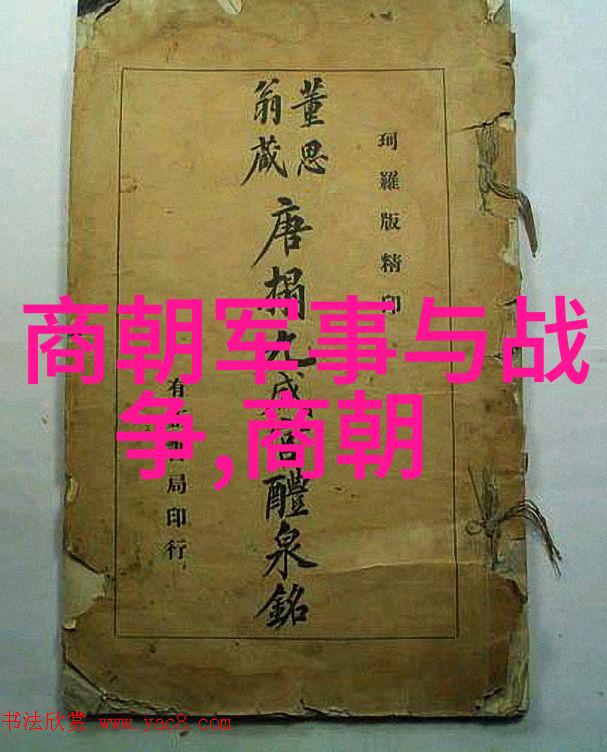 珂羅版精印
董思
翁蔵
唐搨九成宮醴泉銘
有局印行
商朝军事与战
争,商朝
书法欣赏 www.yac8.com